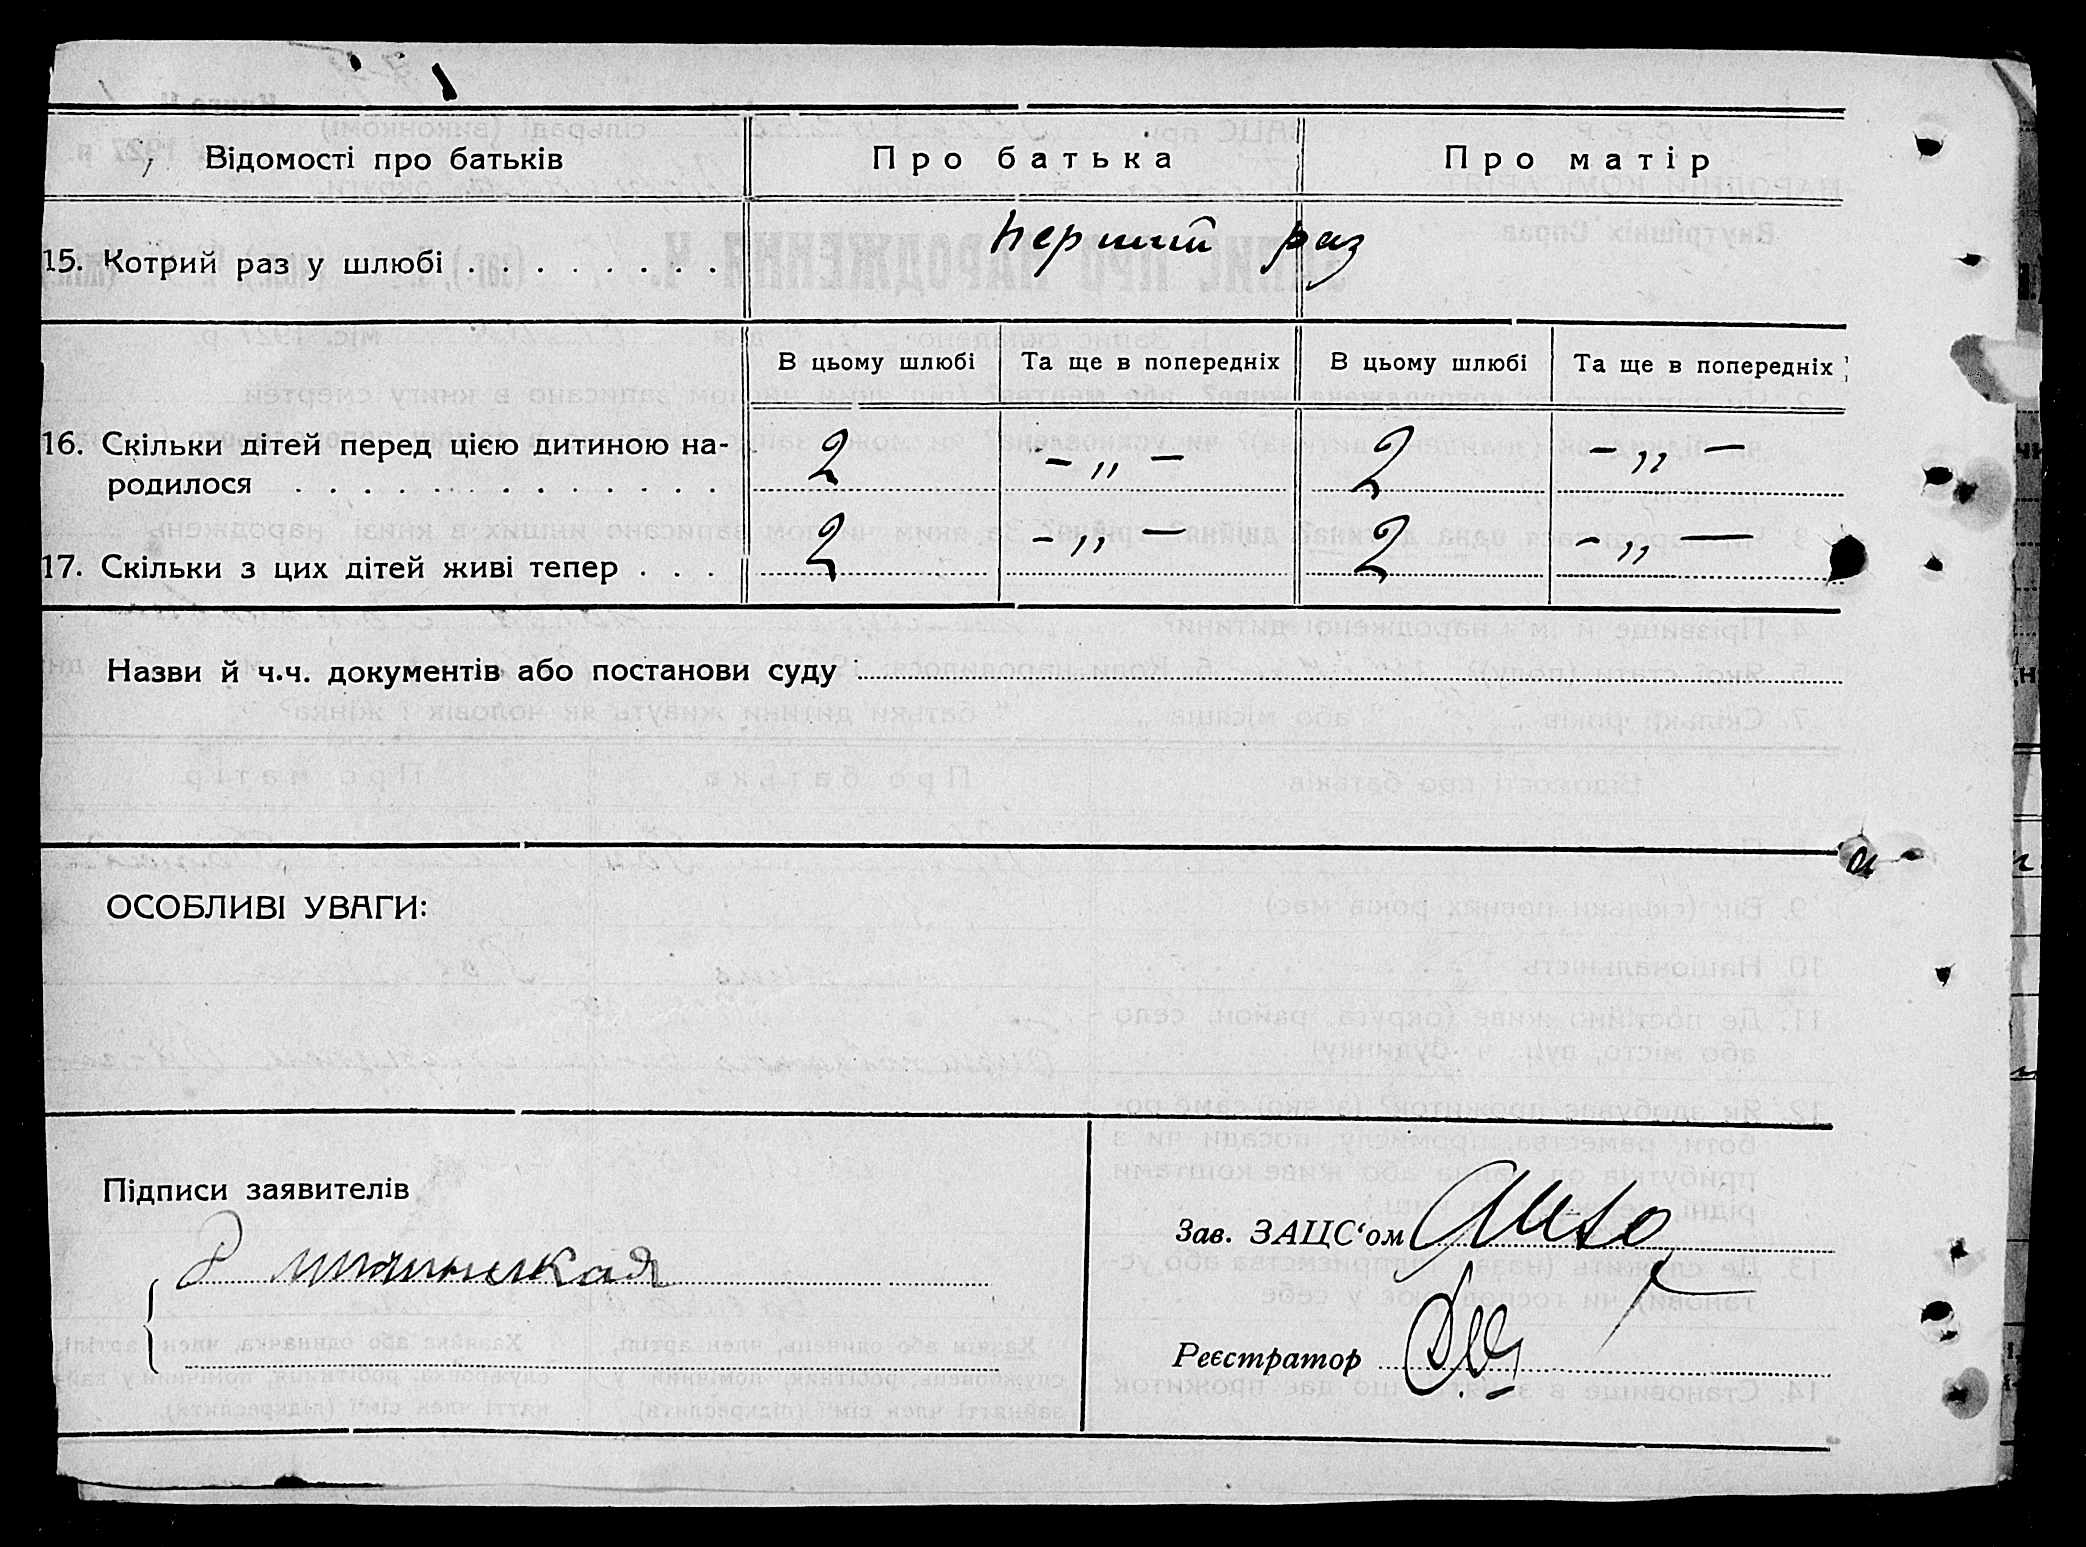 Відомості про батьків Про батька Про матір
15. Котрий раз у шлюбі . . . . . . . . перший раз
В цьому шлюбі Та ще в попередніх В цьому шлюбі Та ще в попередніх
16. Скільки дітей перед цією дитиною на- 2 - „ - 2 - „ -
родилося . . . . . . . . . . . . .
17. Скільки з цих дітей живі тепер . . . 2 - „ - 2 - „ -
Назви й ч.ч. документів або постанови суду
ОСОБЛИВІ УВАГИ:
Підписи заявителів
Зав. ЗАЦС‘ом
Реєстратор